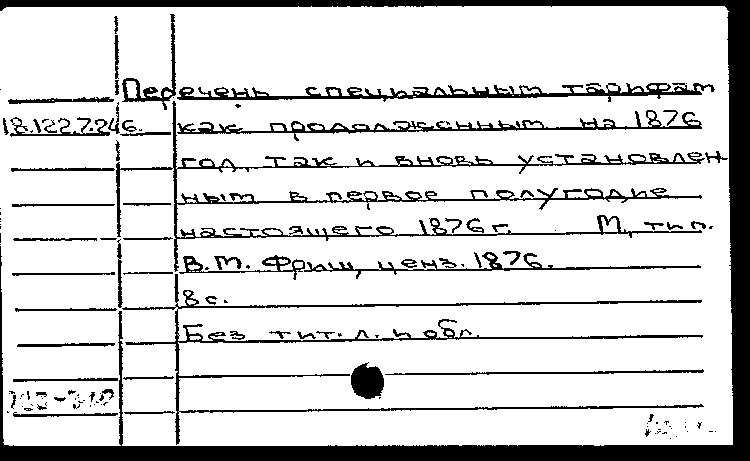 Перечень специальным тарифам
18.122.7.246. как продолженным на 1876
год, так и вновь установлен-
ным в первое полугодие
настоящего 1876 г. М, тип.
В.М. Фриш, ценз. 1876.
8 с.
Без тит. л. и обл.